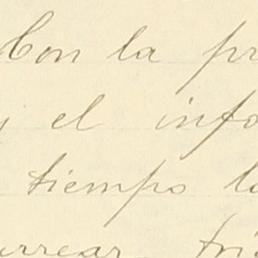 Con la pr
y el info
tiempo la
urrear tri